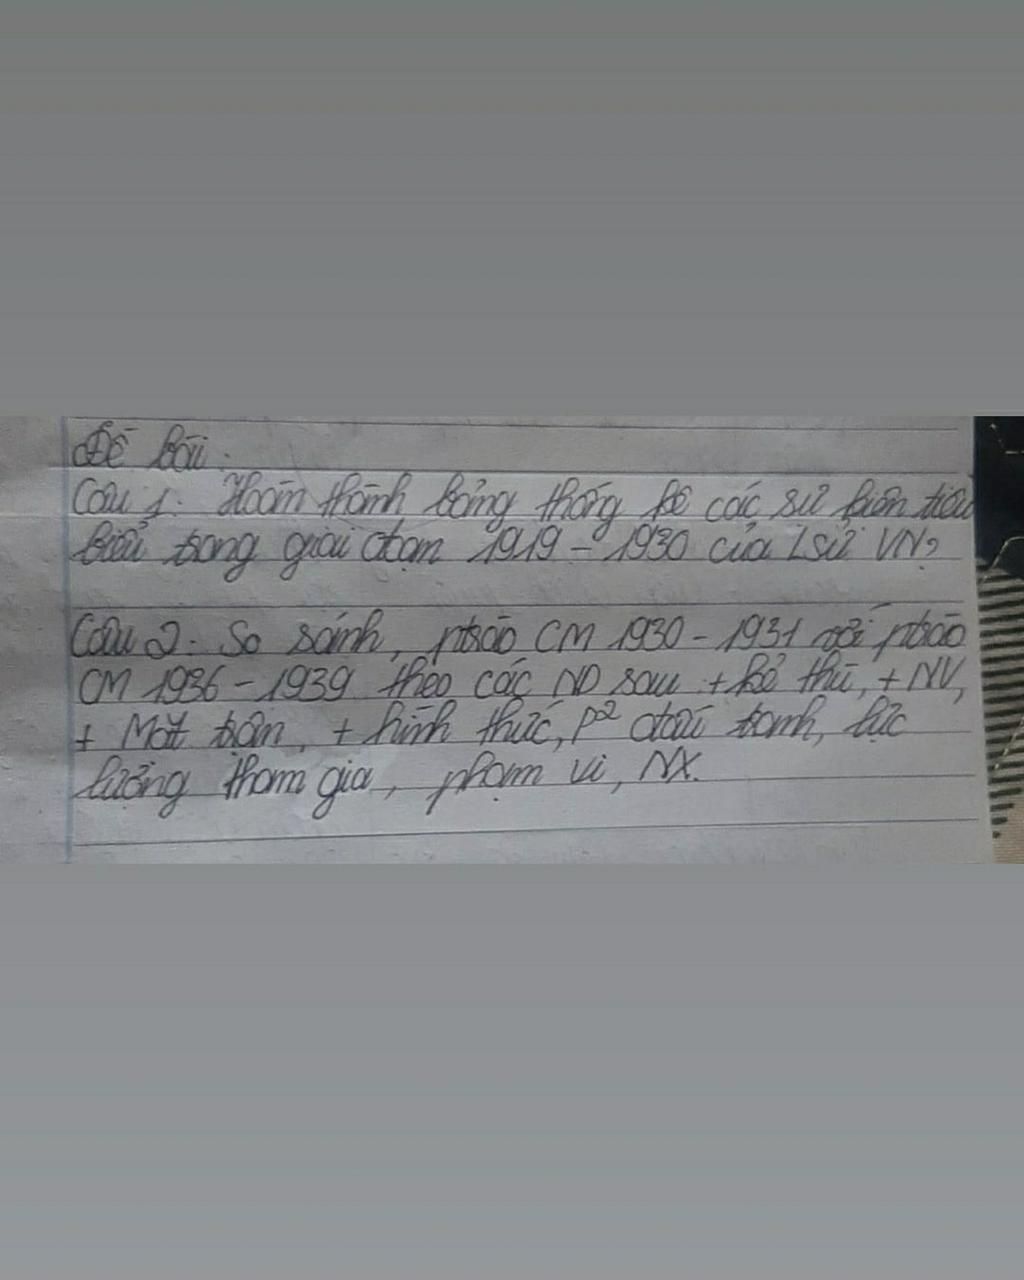 Đề bài.
Câu 1: Hoàn thành bảng thống kê các sự kiện tiêu
biểu trong giai đoạn 1919 - 1930 của Lsử VN?
Câu 2: So sánh, ptrào CM 1930 - 1931 với ptrào
CM 1936 - 1939 theo các ND sau + kẻ thù, + NV,
+ Mặt trận, + hình thức, P² đấu tranh, lực
lượng tham gia, phạm vi, NX.